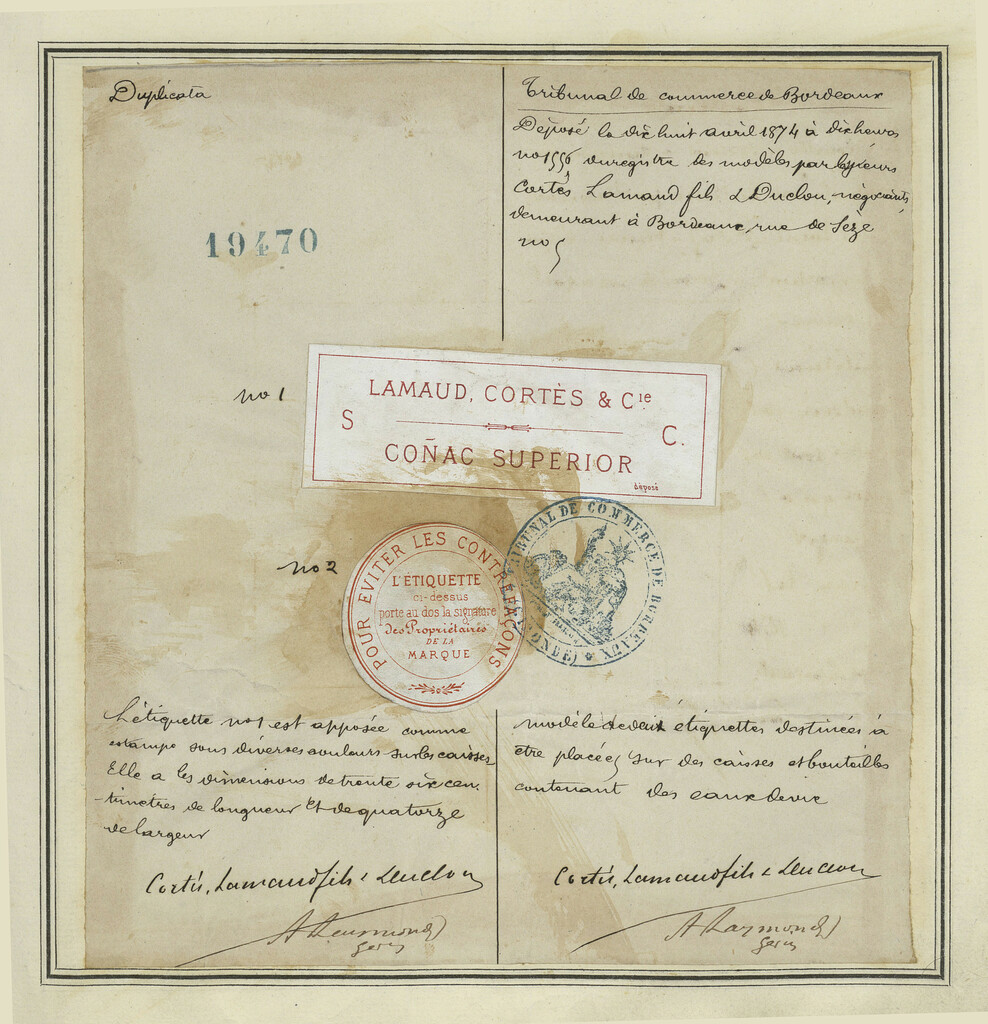 Duplicata
19470
Tribunal de commerce de Bordeaux
Déposé le dix huit avril 1874 à dix heures
no 1556 enregistré des modèles par les sieurs
Cortès, Lamaud fils & Duclou, négociants,
demeurant à Bordeaux, rue de Sèze
no 5
no 1
LAMAUD, CORTÈS & Cie
S C.
COÑAC SUPERIOR
déposé
no 2
POUR EVITER LES CONTREFAÇONS
L'ÉTIQUETTE
ci-dessus
porte au dos la signature
des Propriétaires
DE LA
MARQUE
TRIBUNAL DE COMMERCE DE BORDEAUX
(GIRONDE)
L'étiquette no 1 est apposée comme
estampe sous diverses couleurs sur les caisses
Elle a les dimensions de trente six cen-
timètres de longueur et de quatorze
de largeur
Cortès, Lamaud fils & Duclou
A Raymond
modèle de deux étiquettes destinées à
être placées sur des caisses et bouteilles
contenant des eaux devie
Cortès, Lamaud fils & Duclou
A Raymond